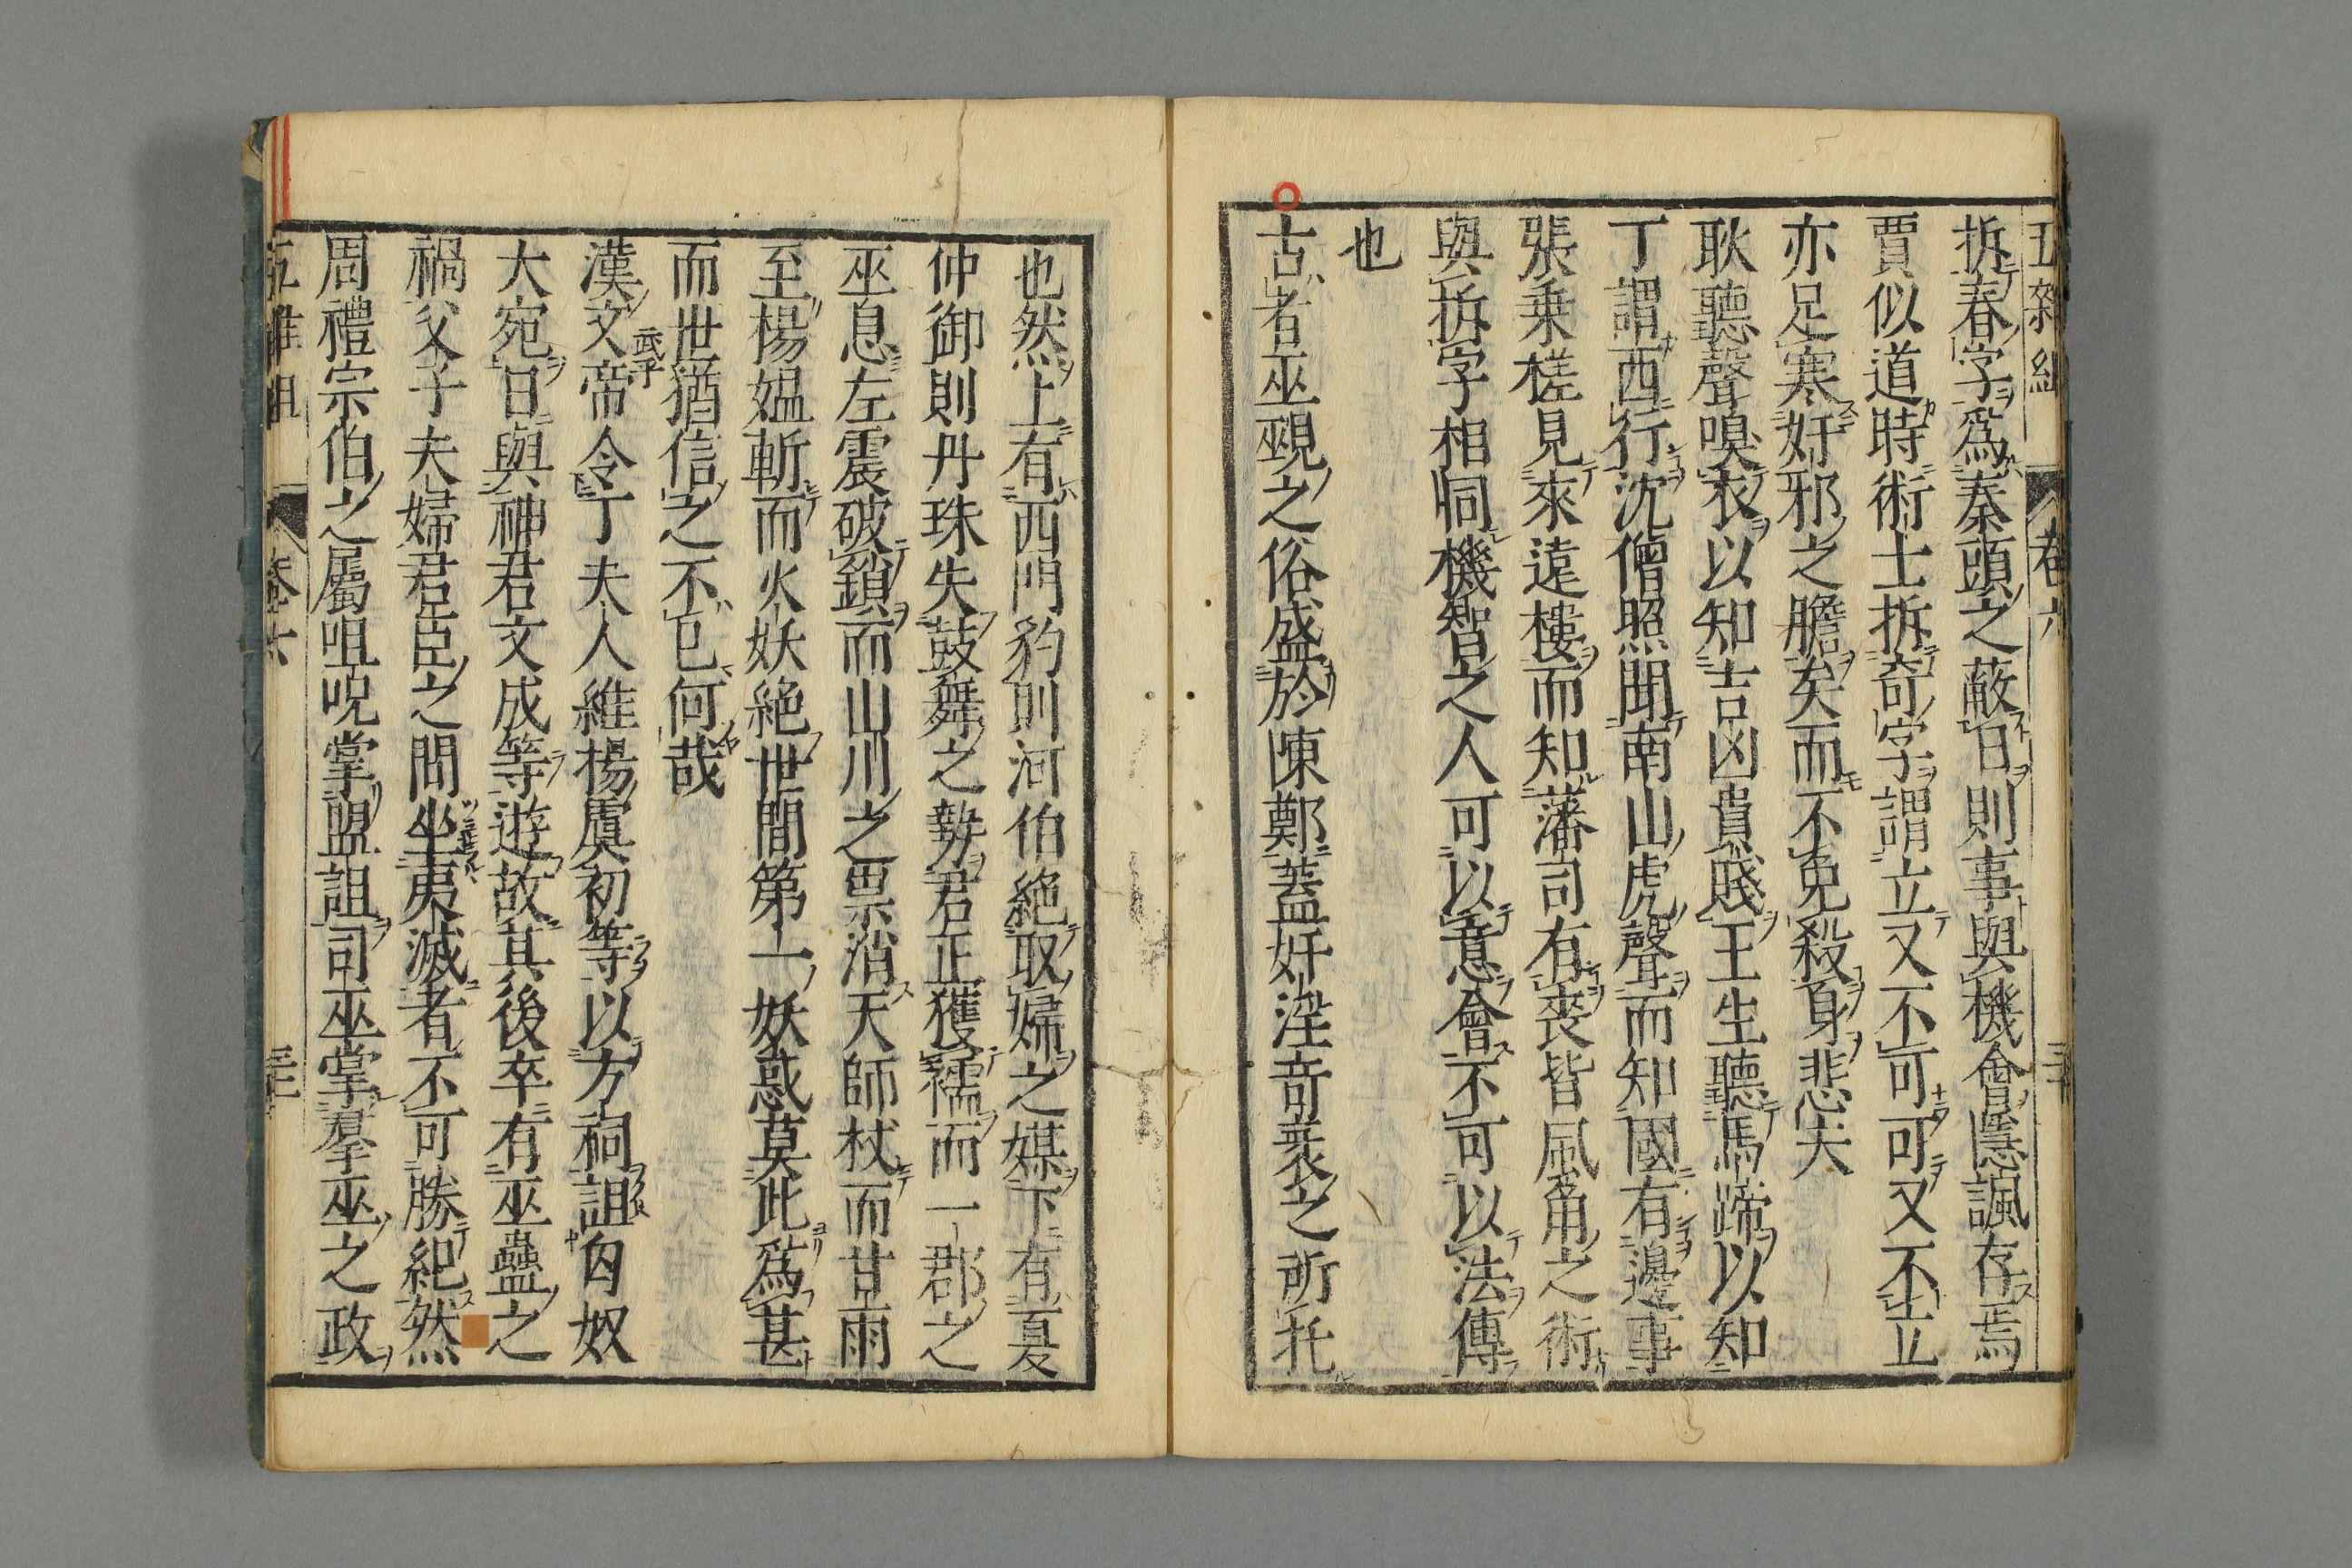 五雜組 卷六 三十
拆春字爲秦頭之蔽日則事與機會隱諷存焉
賈似道時術士拆奇字謂立又不可可又不立
亦足寒奸邪之膽矣而不免殺身悲夫
耿聽聲嗅衣以知吉凶貴賤王生聽馬蹄以知
丁謂西行沈僧照聞南山虎聲而知國有邊事
張乗槎見來遠樓而知藩司有喪皆風角之術
與拆字相同機智之人可以意會不可以法傳
也
古者巫覡之俗盛於陳鄭蓋奸淫奇衺之所托
也然上有西門豹則河伯絶取婦之媒下有夏
仲御則丹珠失鼓舞之勢君正獲襦而一郡之
巫息左震破鎖而山川之祟消天師杖而甘雨
至楊媪斬而火妖絶世間第一妖惑莫此爲甚
而世猶信之不已何哉
漢文帝令丁夫人維楊虞初等以方祠詛匈奴
武乎
大宛曰與神君文成等遊故其後卒有巫蠱之
禍父子夫婦君臣之間坐夷滅者不可勝紀然
周禮宗伯之屬咀呪掌盟詛司巫掌羣巫之政
五雜組 卷六 三十一